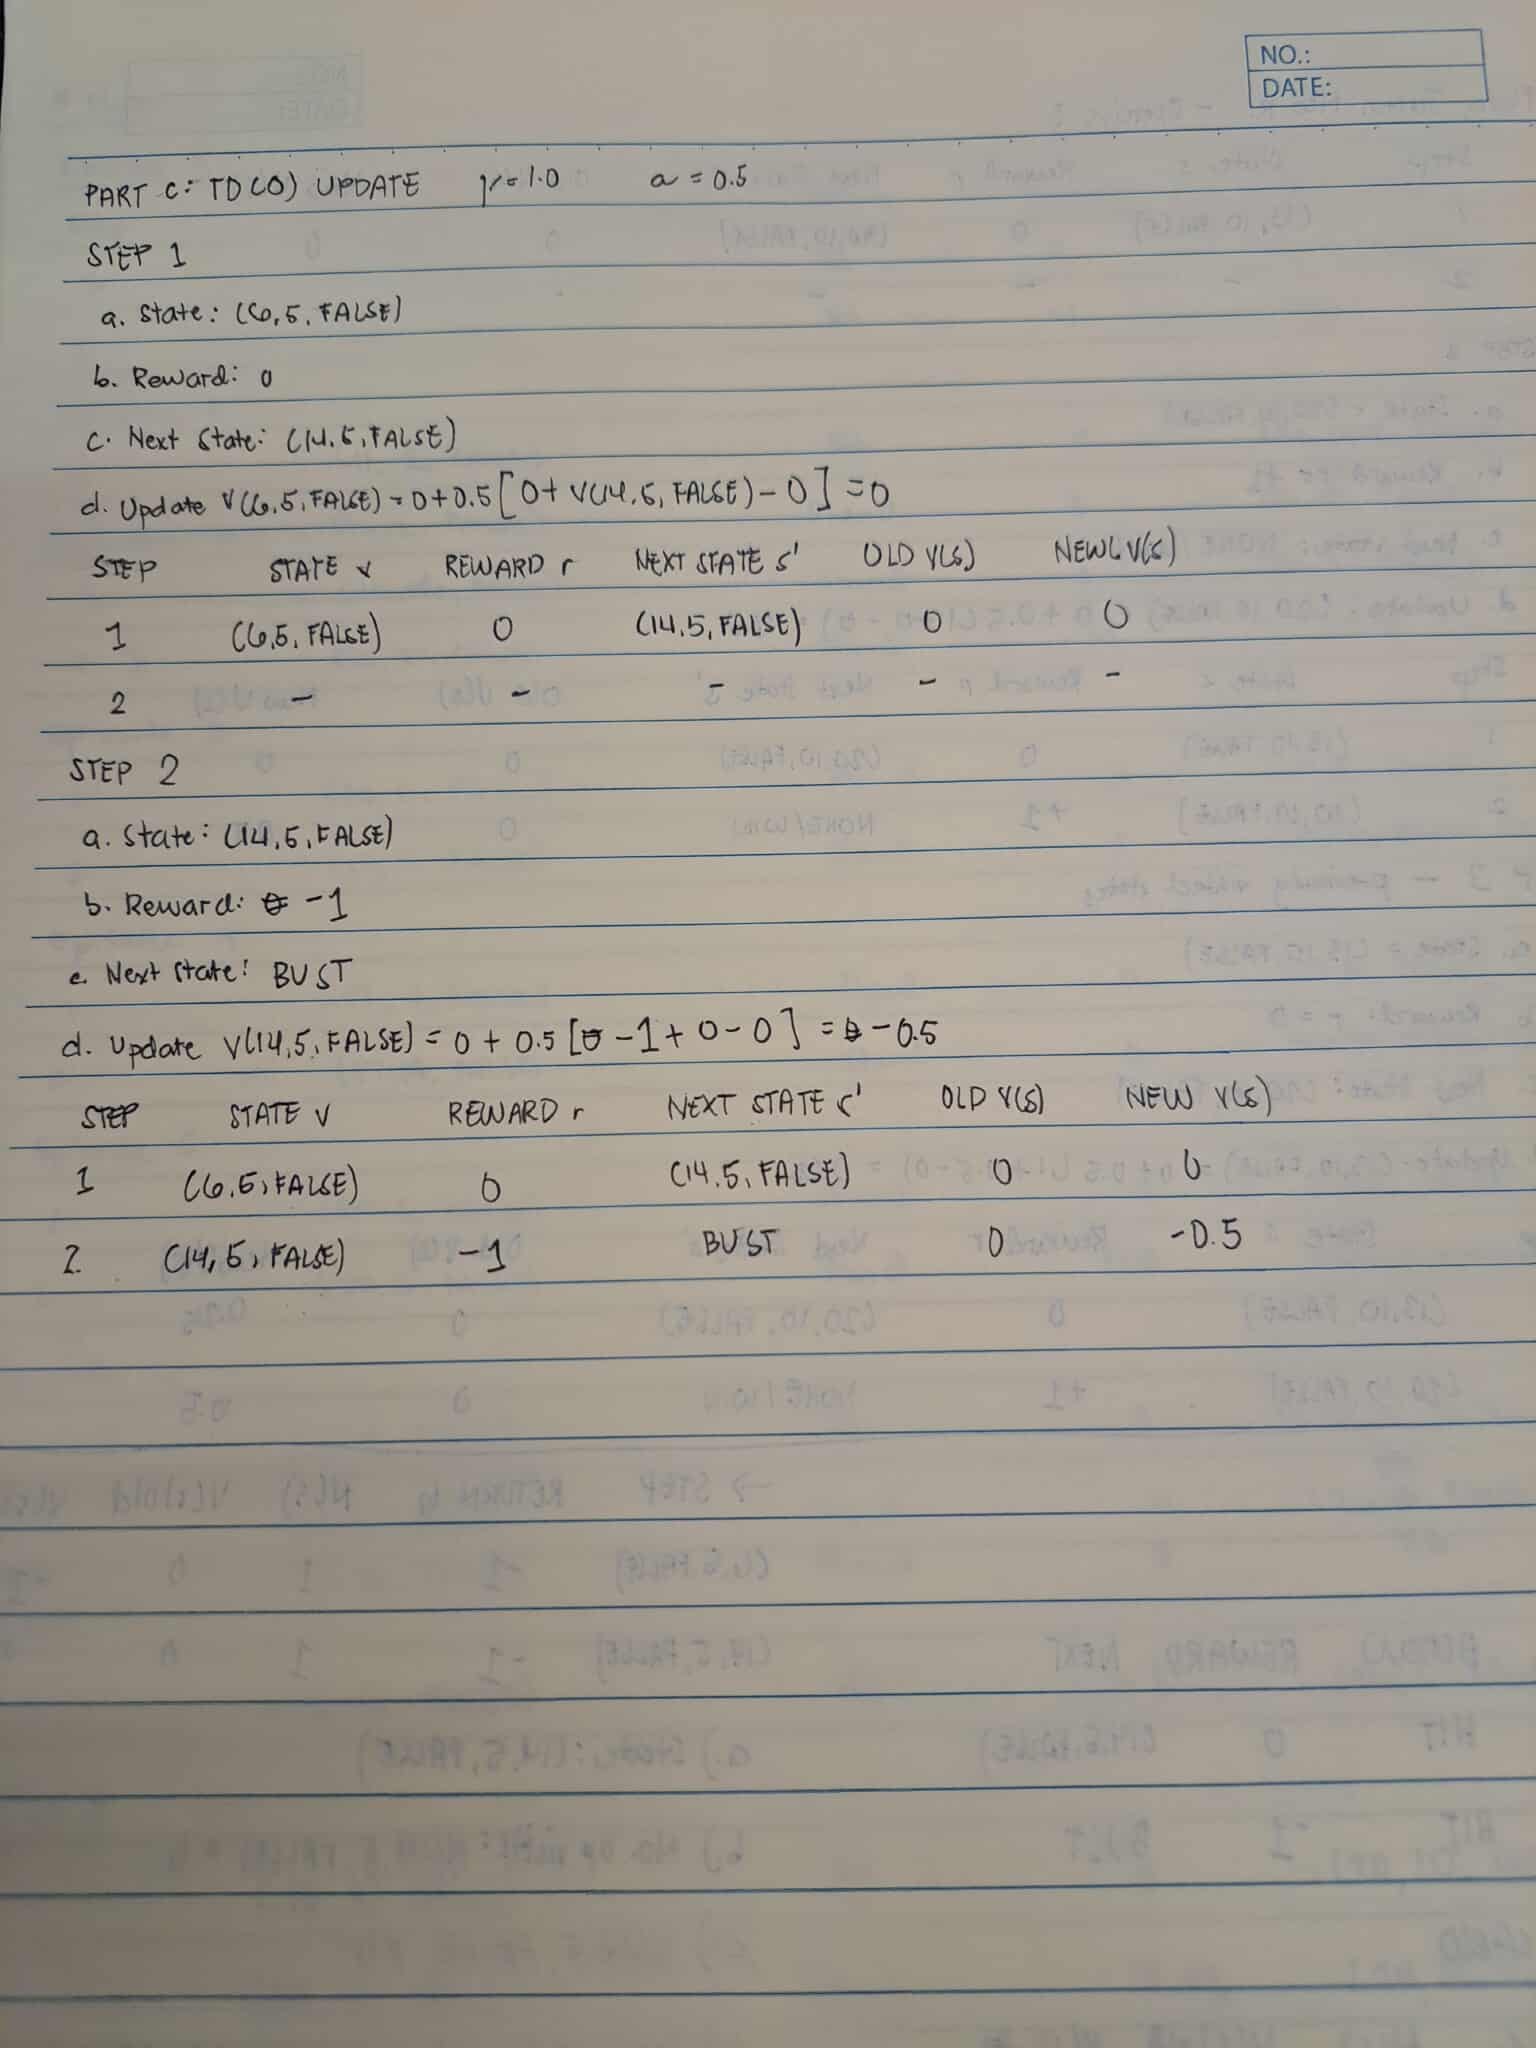 NO.:
DATE:
PART C: TD(0) UPDATE γ=1.0 a = 0.5
STEP 1
a. State: (6,5, FALSE)
b. Reward: 0
c. Next State: (14,5, FALSE)
d. Update V(6,5, FALSE) = 0 + 0.5 [0 + V(14,5, FALSE) - 0] = 0
STEP STATE v REWARD r NEXT STATE s' OLD V(s) NEW V(s)
1 (6,5, FALSE) 0 (14,5, FALSE) 0 0
2 - - - - -
STEP 2
a. State: (14,5, FALSE)
b. Reward: -1
c. Next State: BUST
d. Update V(14,5, FALSE) = 0 + 0.5 [-1 + 0 - 0] = -0.5
STEP STATE V REWARD r NEXT STATE s' OLD V(s) NEW V(s)
1 (6,5, FALSE) 0 (14,5, FALSE) 0 0
2 (14,5, FALSE) -1 BUST 0 -0.5